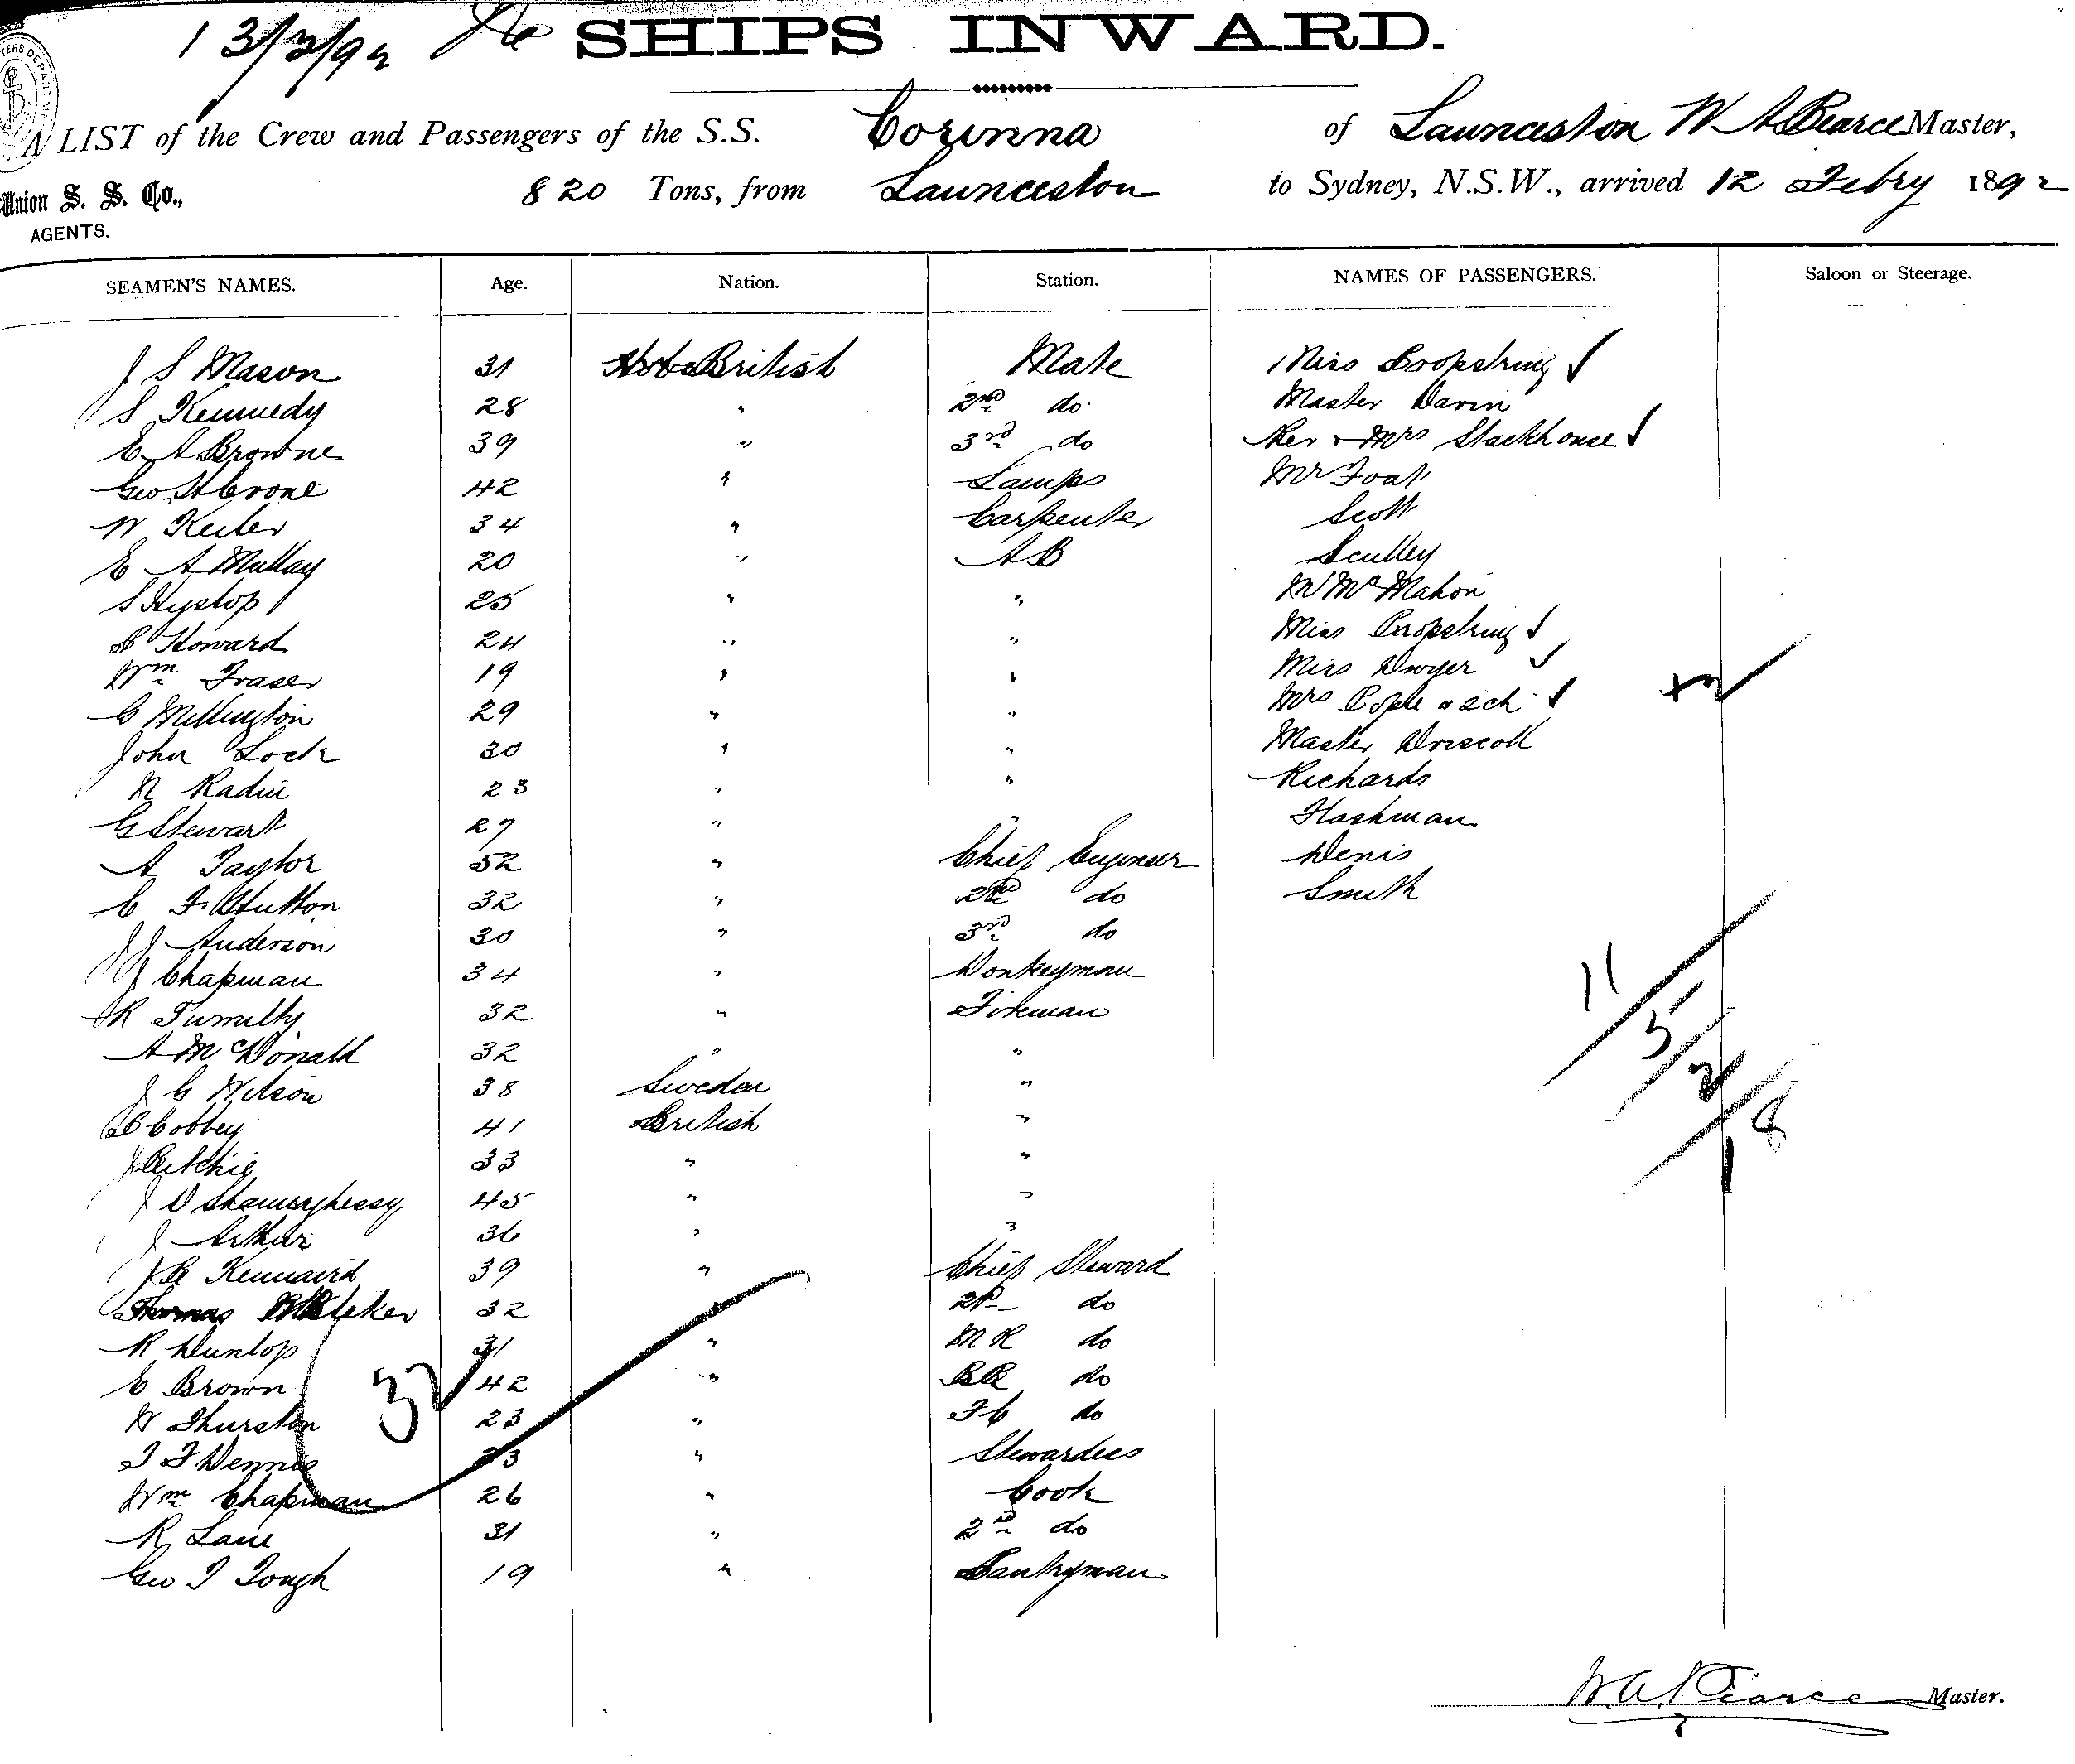 13/2/92
SHIPS INWARD.
A LIST of the Crew and Passengers of the S.S. Corinna of Launceston W A Pearce Master,
Union S. S. Co., 820 Tons, from Launceston to Sydney, N.S.W., arrived 12 Febry 1892
AGENTS.
SEAMEN'S NAMES. Age. Nation. Station. NAMES OF PASSENGERS. Saloon or Steerage.
J S Mason 31 British Mate Miss Cropstring
S Kennedy 28 " 2nd do Master Davin
E A Browne 39 " 3rd do Rev & Mrs Stackhouse
Geo H Crone 42 " Lamps Mr Foat
W Keiler 34 " Carpenter Scott
E A Mullay 20 " AB Sculley
S Hyslop 25 " " Mr McMahon
Howard 24 " " Miss
Wm Fraser 19 " " Miss Dwyer
C Millington 29 " " Mrs Pople & 2 ch
John Lock 30 " " Master Driscoll
N Radin 23 " " Richards
G Stewart 27 " " Flashman
A Taylor 52 " Chief Engineer Denis
C F Hutton 32 " 2nd do Smith
J J Anderson 30 " 3rd do
J Chapman 34 " Donkeyman
R Tumilty 32 " Fireman
A McDonald 32 " "
J G Wilson 38 Sweden "
Cobbey 41 British "
J Ritchie 33 " "
J 45 " "
J Arthur 36 " "
J B Kennaird 39 " Chief Steward
Thomas 32 " 2d do
R Dunlop 31 " M R do
C Brown 42 " B R do
W Thurston 23 " F C do
T F Dennis 23 " Stewardess
Wm Chapman 26 " Cook
R Lane 31 " 2nd do
Geo T Tough 19 " Pantryman
32
11
5
2
18
W.A. Pearce Master.